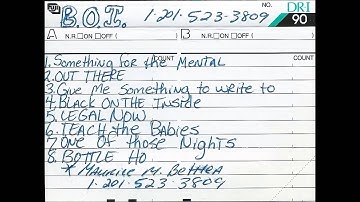 B.O.T. 1-201-523-3809 NO. DRI 90
A N.R. □ ON □ OFF ( ) B N.R. □ ON □ OFF ( )
COUNT COUNT
1. Something for the Mental
2. OUT THERE
3. Give Me Something to write to
4. BLACK ON THE Inside
5. LEGAL NOW
6. TEACH the Babies
7. One Of those Nights
8. BOTTLE HO
* MAURICE M. BETHEA
1-201-523-3809